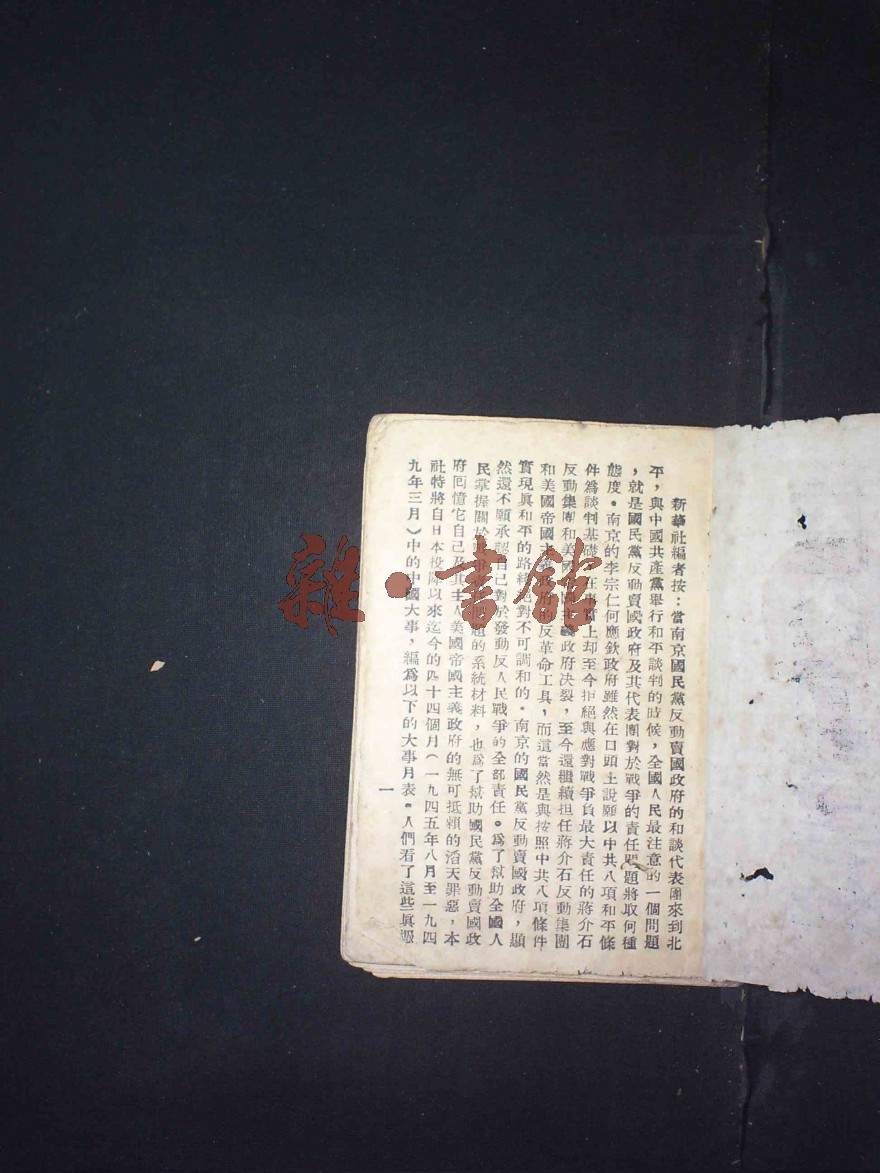 新華社編者按：當南京國民黨反動賣國政府的和談代表團來到北
平，與中國共產黨舉行和平談判的時候，全國人民最注意的一個問題
，就是國民黨反動賣國政府及其代表團對於戰爭的責任問題將取何種
態度。南京的李宗仁何應欽政府雖然在口頭上說願以中共八項和平條
件爲談判基礎，在事實上却至今拒絕與應對戰爭負最大責任的蔣介石
反動集團和美國帝國主義政府決裂，至今還繼續担任蔣介石反動集團
和美國帝國主義政府的反革命工具，而這當然是與按照中共八項條件
實現眞和平的路線絕對不可調和的。南京的國民黨反動賣國政府，顯
然還不願承認自己對於發動反人民戰爭的全部責任。爲了幫助全國人
民掌握關於戰爭責任問題的系統材料，也爲了幫助國民黨反動賣國政
府回憶它自己及其主人美國帝國主義政府的無可抵賴的滔天罪惡，本
社特將自日本投降以來迄今的四十四個月（一九四五年八月至一九四
九年三月）中的中國大事，編爲以下的大事月表。人們看了這些眞
一
雜·書館